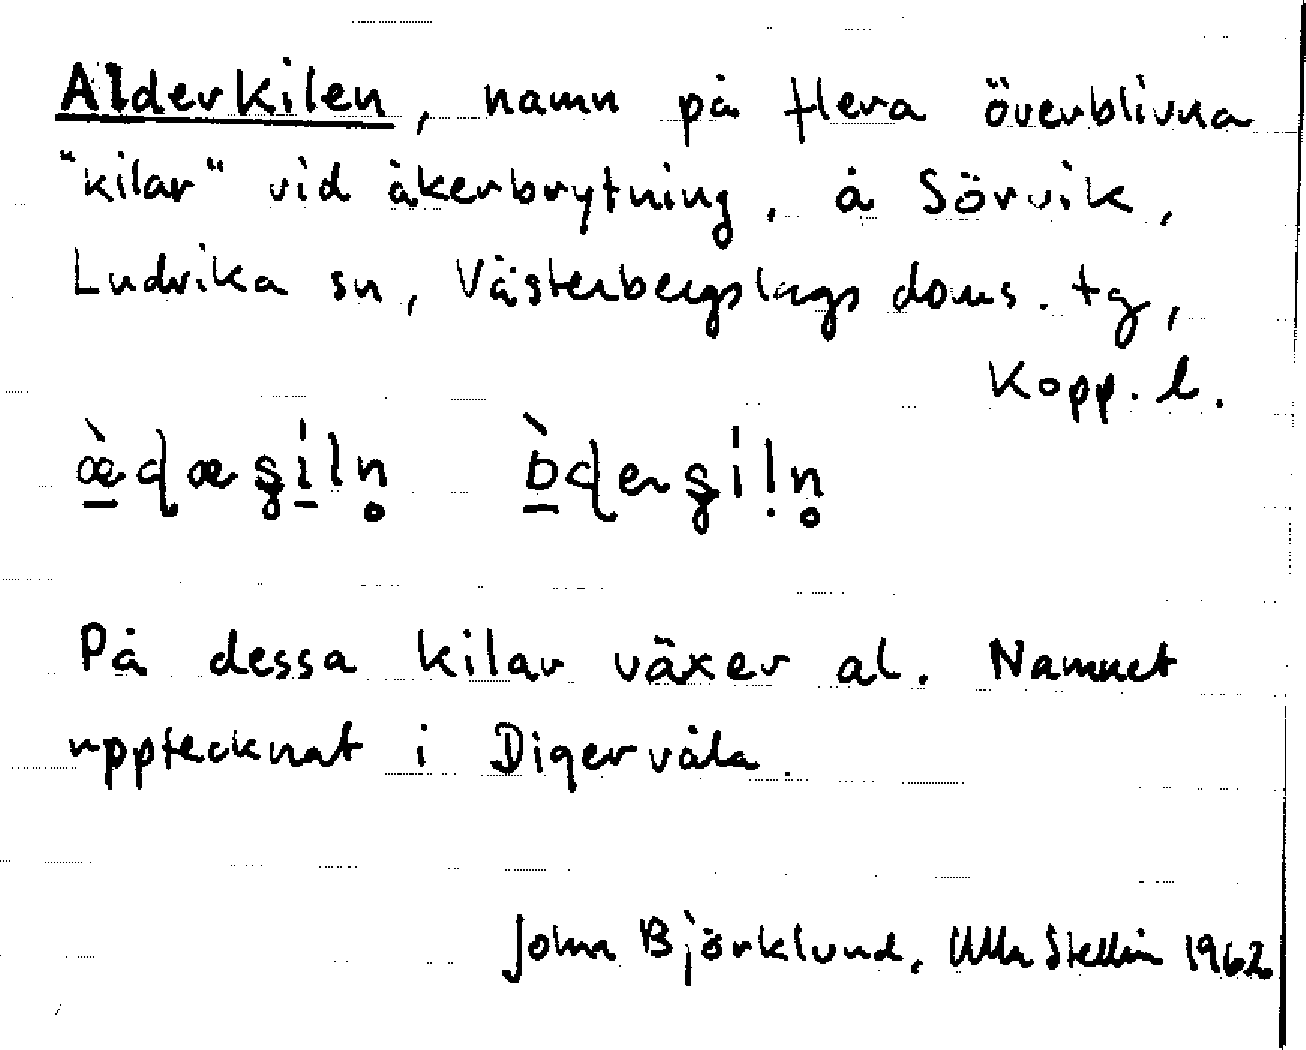 Alderkilen, namn på flera överblivna
"kilar" vid åkerbrytning, å Sörvik,
Ludvika sn, Västerbergslags doms. tg,
Kopp. l.
På dessa kilar växer al. Namnet
upptecknat i Digervåla.
John Björklund, Ulla Stellin 1962